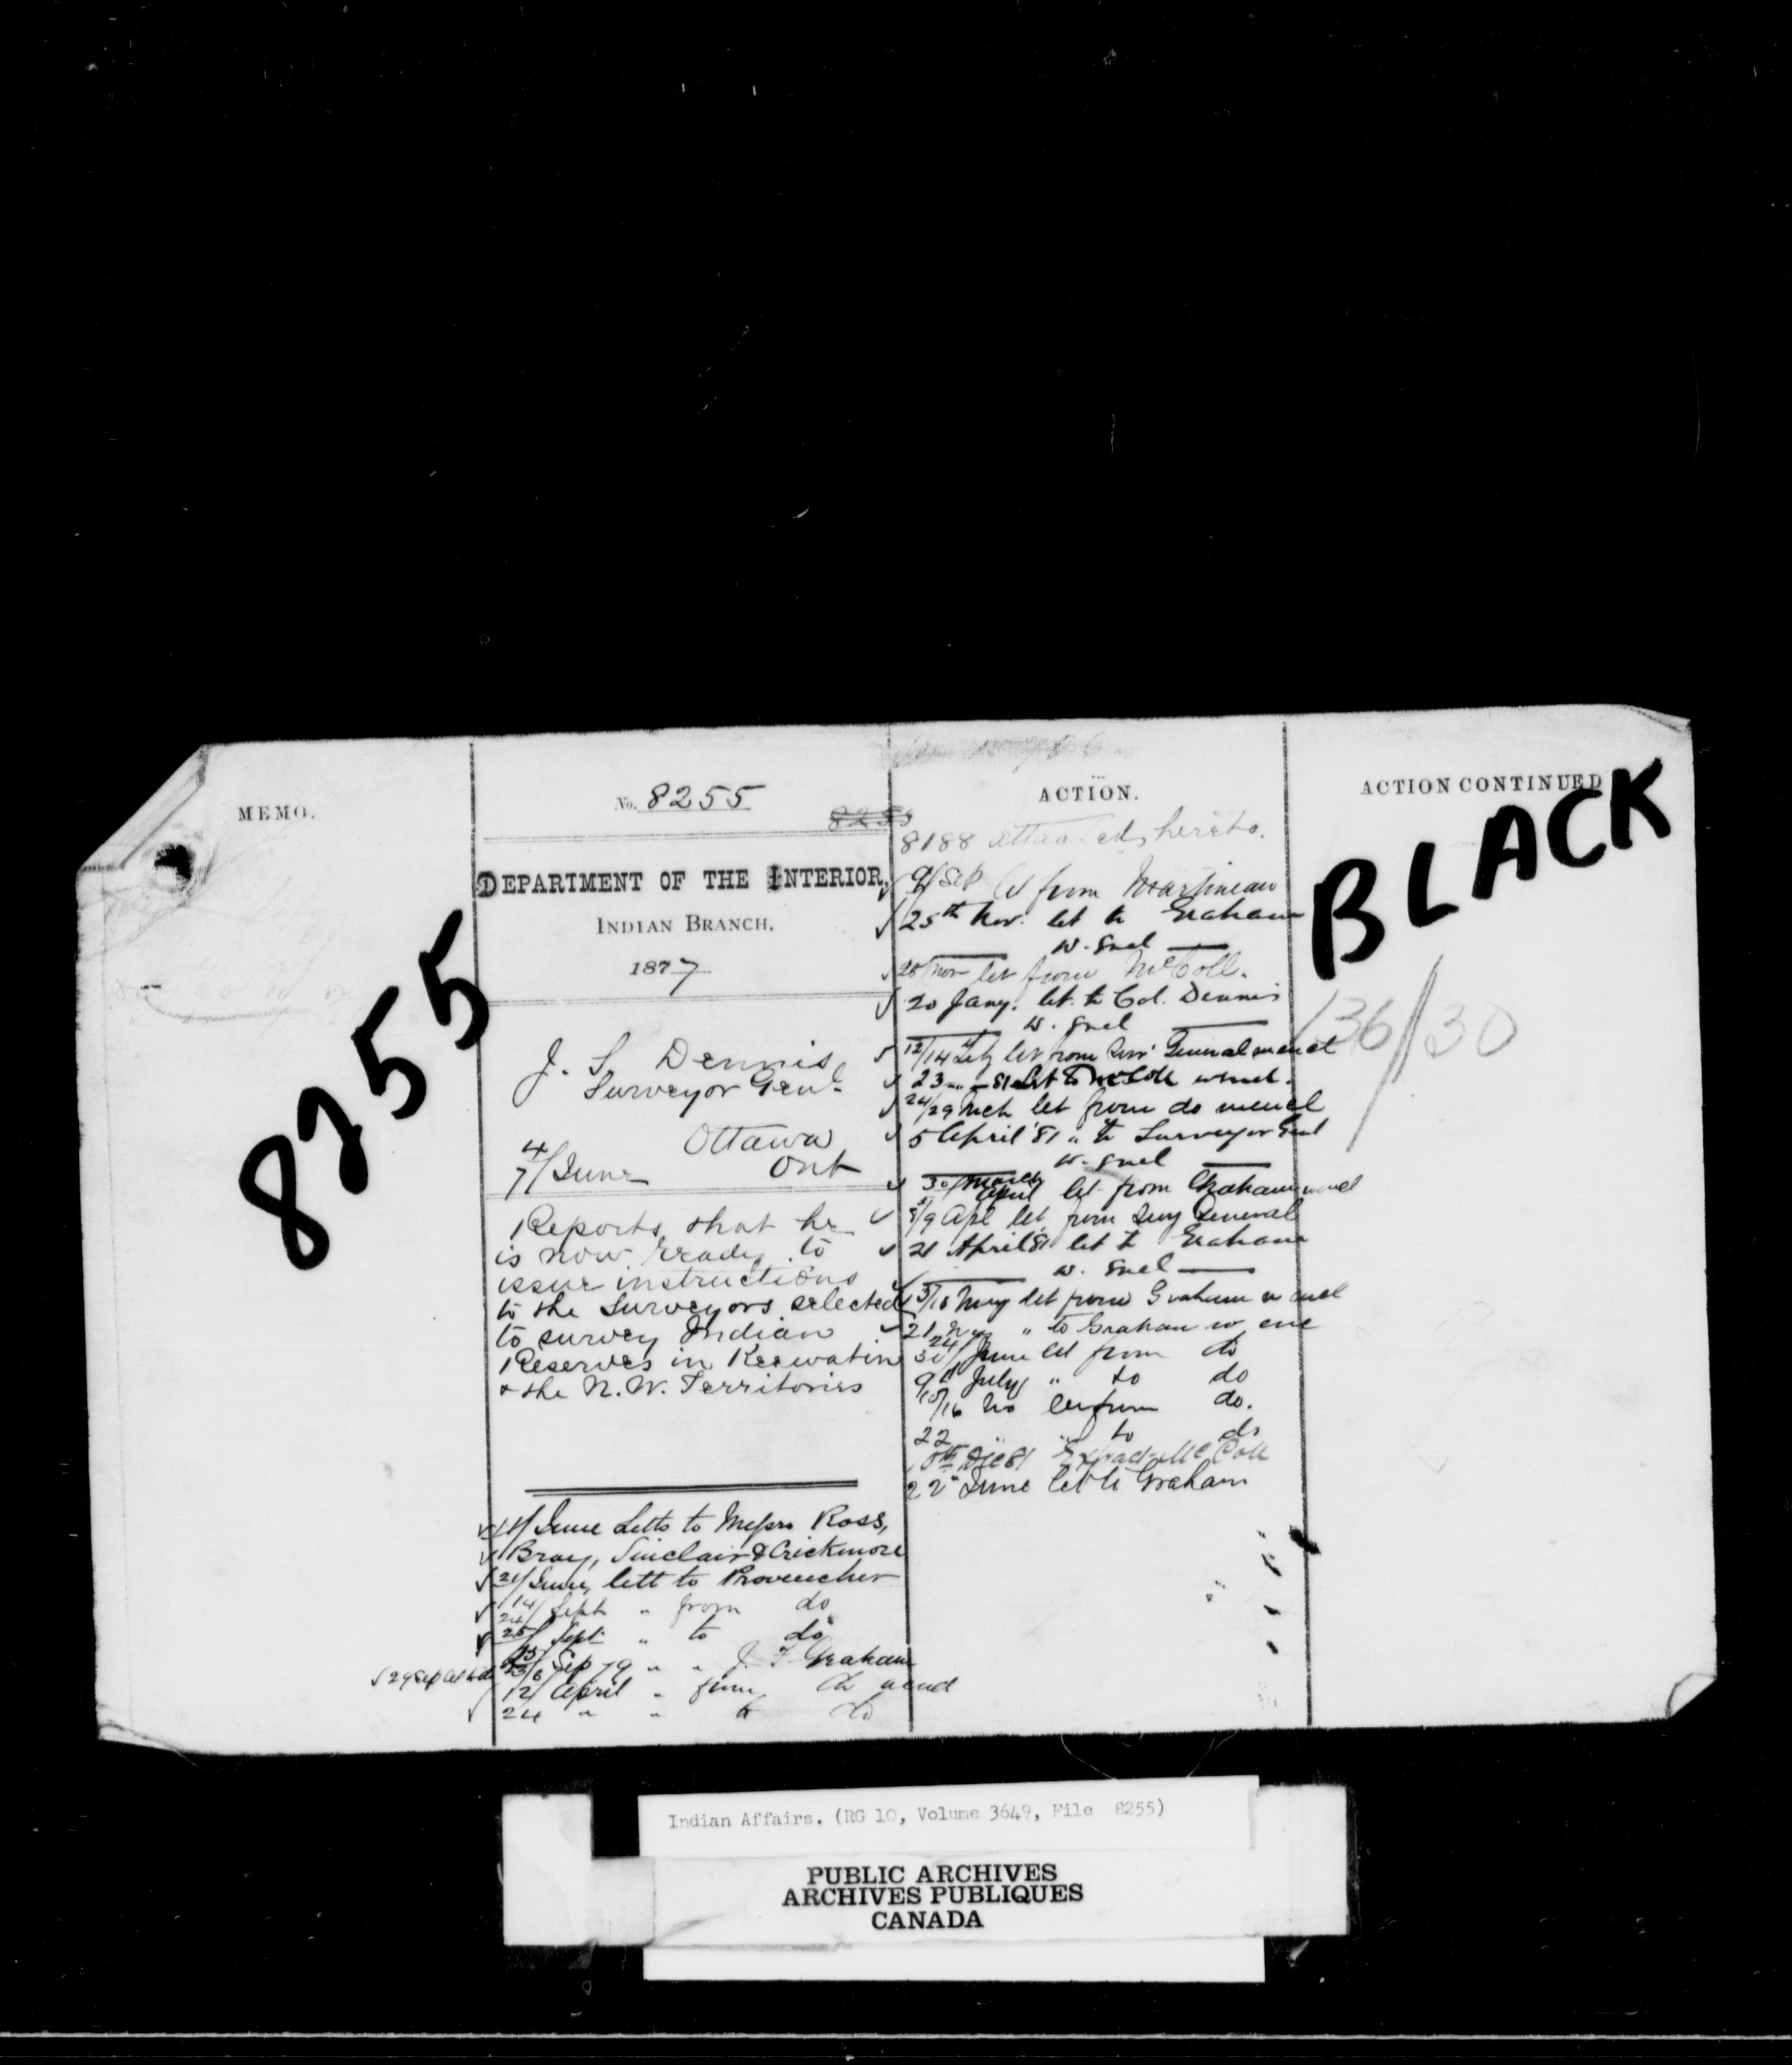 MEMO.
8255
✓ 29 Sep
No. 8255
8255
DEPARTMENT OF THE INTERIOR,
INDIAN BRANCH.
1877
J. S. Dennis
Surveyor Genl
Ottawa
Ont
4/7 June
Reports that he
is now ready to
issue instructions
to the Surveyors selected
to survey Indian
Reserves in Keewatin
& the N. W. Territories
✓ 14/ June Letts to Messrs Ross,
✓ Bray, Sinclair & Crickmore
✓ 21/ June, lett to Provencher
✓ 14/24 Sept " from do
✓ 25/ Sept " to do
Sep 79 " " J. F. Graham
12/ April " from do
✓ 24 " " to do
ACTION.
8188 attached hereto.
✓ 9/ Sep let from Martineau
✓ 25th Nov. let to Graham
w. encl
✓ 28/ Nov let from McColl.
✓ 20 Jany. let. to Col. Dennis
w. encl
✓ 12/14 Feby let from Surr General w encl
✓ 23 " 81 let to McColl w encl.
✓ 24/29 Mch let from do w encl
✓ 5 April '81 " to Surveyor Genl
w. encl
✓ 30/ March April let from Graham w encl
✓ 8/9 Apl let. from Surv General
✓ 21 April 81 let to Graham
w. encl
May let from Graham w encl
21 " to Graham w enc
June let from do
9 July " to do
/16 let from do.
22 " " to do
Dec 81 Extract McColl
22" June let to Graham
ACTION CONTINUED
BLACK
136/30
Indian Affairs. (RG 10, Volume 3649, File 8255)
PUBLIC ARCHIVES
ARCHIVES PUBLIQUES
CANADA